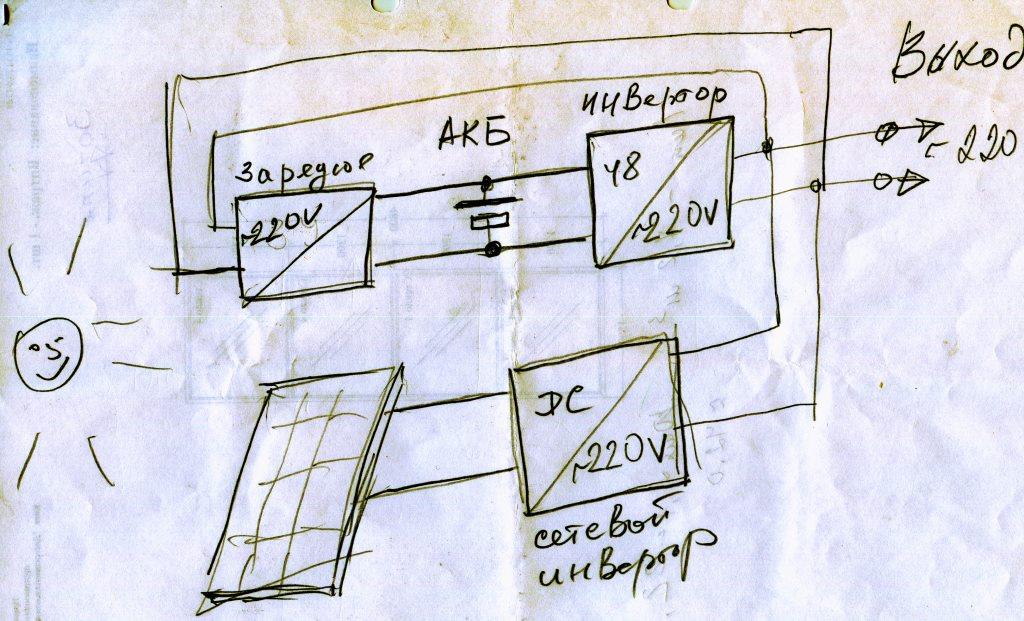 Выход
инвертор
АКБ
~220
Зарядное
48
~220V
~220V
DC
~220V
сетевой
инвертор